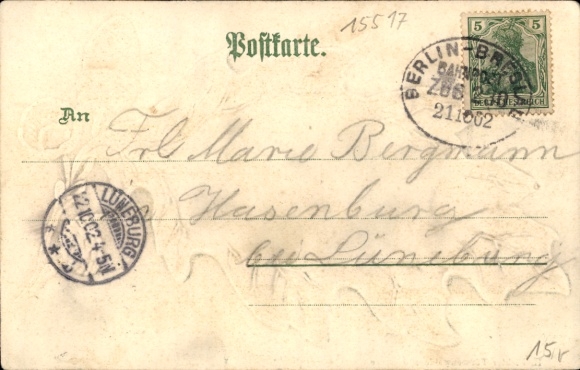 15517
Postkarte.
5 5
BERLIN-BRESLAU
BAHNPOST
ZUG
21 10 02
DEUTSCHES REICH
An
Frl Marie Bergmann
Hasenburg
bei Lüneburg
LÜNEBURG
22 10 02 4-5N
15,-